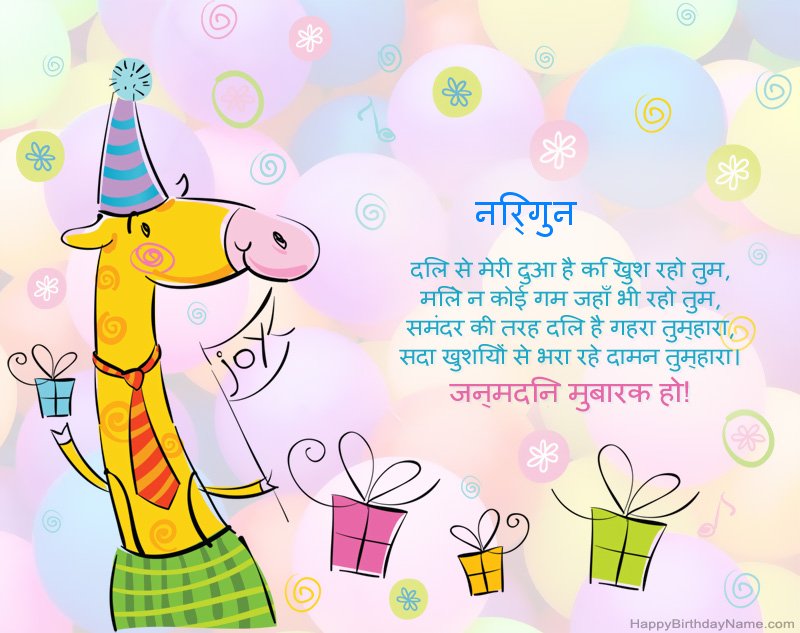 नरि्गुन
दलि से मेरी दुआ है कि खुश रहो तुम,
मलिे न कोई गम जहाँ भी रहो तुम,
समंदर की तरह दलि है गहरा तुम्हारा,
सदा खुशयिों से भरा रहे दामन तुम्हारा।
जन्मदनि मुबारक हो!
joy
HappyBirthdayName.com